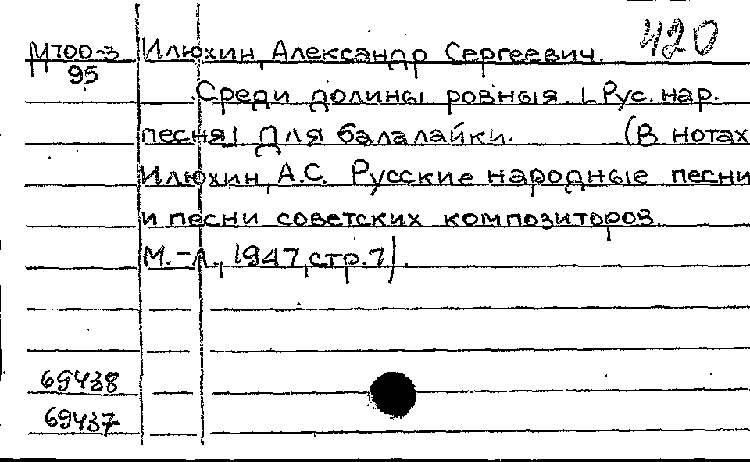 420
М700-3 Илюхин, Александр Сергеевич.
95
Среди долины ровныя. [Рус. нар.
песня] Для балалайки. (В нотах
Илюхин, А.С. Русские народные песни
и песни советских композиторов
М.-Л., 1947, стр.7).
69438
69437